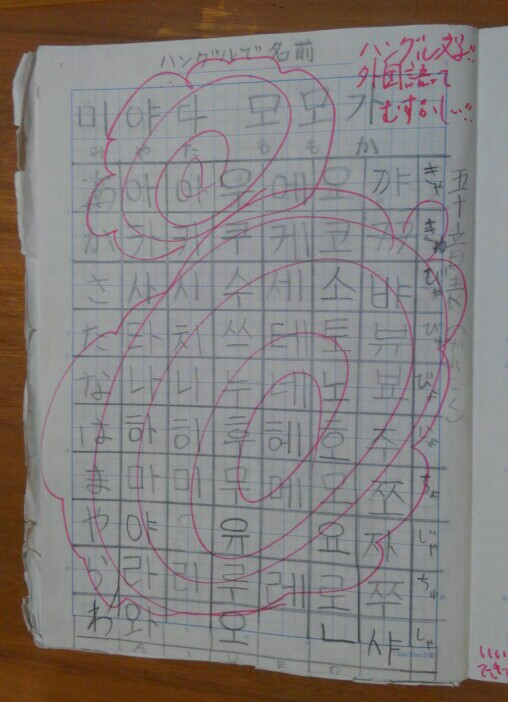 ハングルで名前
ハングル文字!!
外国語って
むずかしい!!
미야다 모모가
みやた ももか
五十音表
あ 아 이 우 에 오 꺄 きゃ
か 카 키 쿠 케 코 きゅ
さ 사 시 수 세 소 뱌 びゃ
た 타 치 쓰 테 토 뷰 びゅ
な 나 니 누 네 노 뵤 びょ
は 하 히 후 헤 호 주
ま 마 미 무 메 모 쪼 ちょ
や 야 유 요 자 じゃ
ら 라 리 루 레 로 쭈 ちゅ
わ 와 오 ㄴ 샤 しゃ